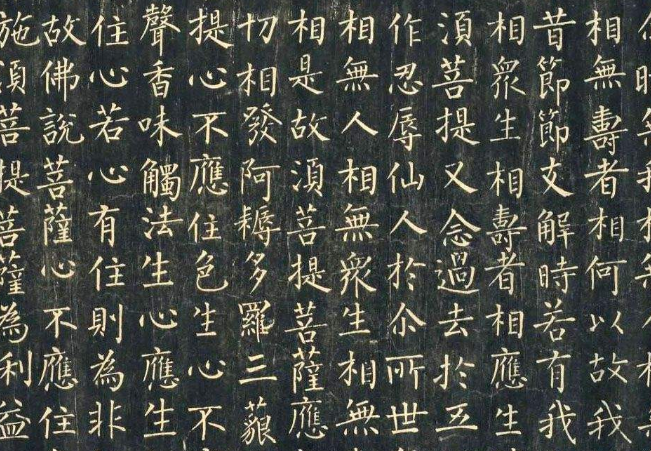 尒時無我相無人相無
相無壽者相何以故我
昔節節支解時若有我
相衆生相壽者相應生
須菩提又念過去於五
作忍辱仙人於尒所世
相無人相無衆生相無
相是故須菩提菩薩應
切相發阿耨多羅三藐
提心不應住色生心不
聲香味觸法生心應生
住心若心有住則為非
故佛說菩薩心不應住
施須菩提菩薩為利益